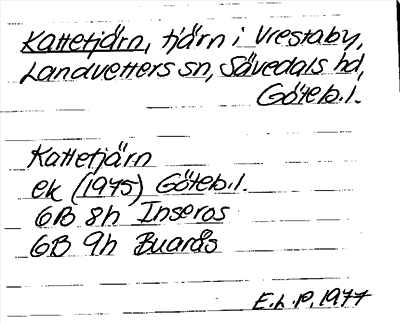 Kattetjärn, tjärn i Vrestaby,
Landvetters sn, Sävedals hd,
Göteb.l.
Kattetjärn
ek (1975) Göteb.l.
6B 8h Inseros
6B 9h Buarås
E.h.P. 1977